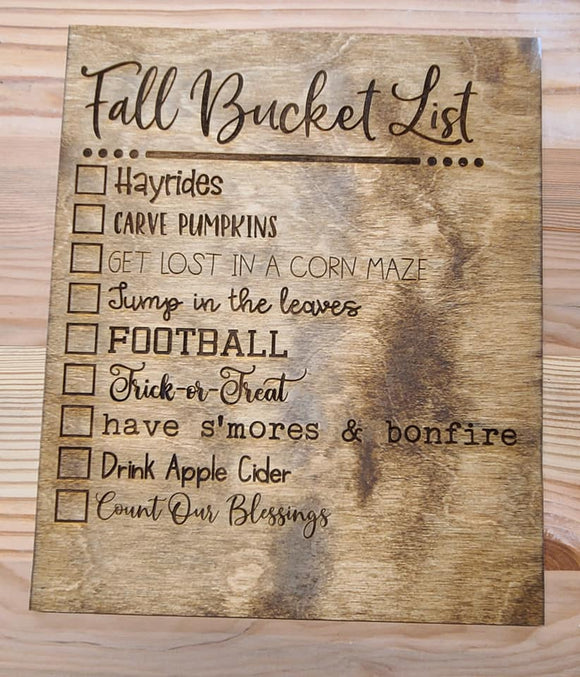 Fall Bucket List
Hayrides
CARVE PUMPKINS
GET LOST IN A CORN MAZE
Jump in the leaves
FOOTBALL
Trick-or-Treat
have s'mores & bonfire
Drink Apple Cider
Count Our Blessings